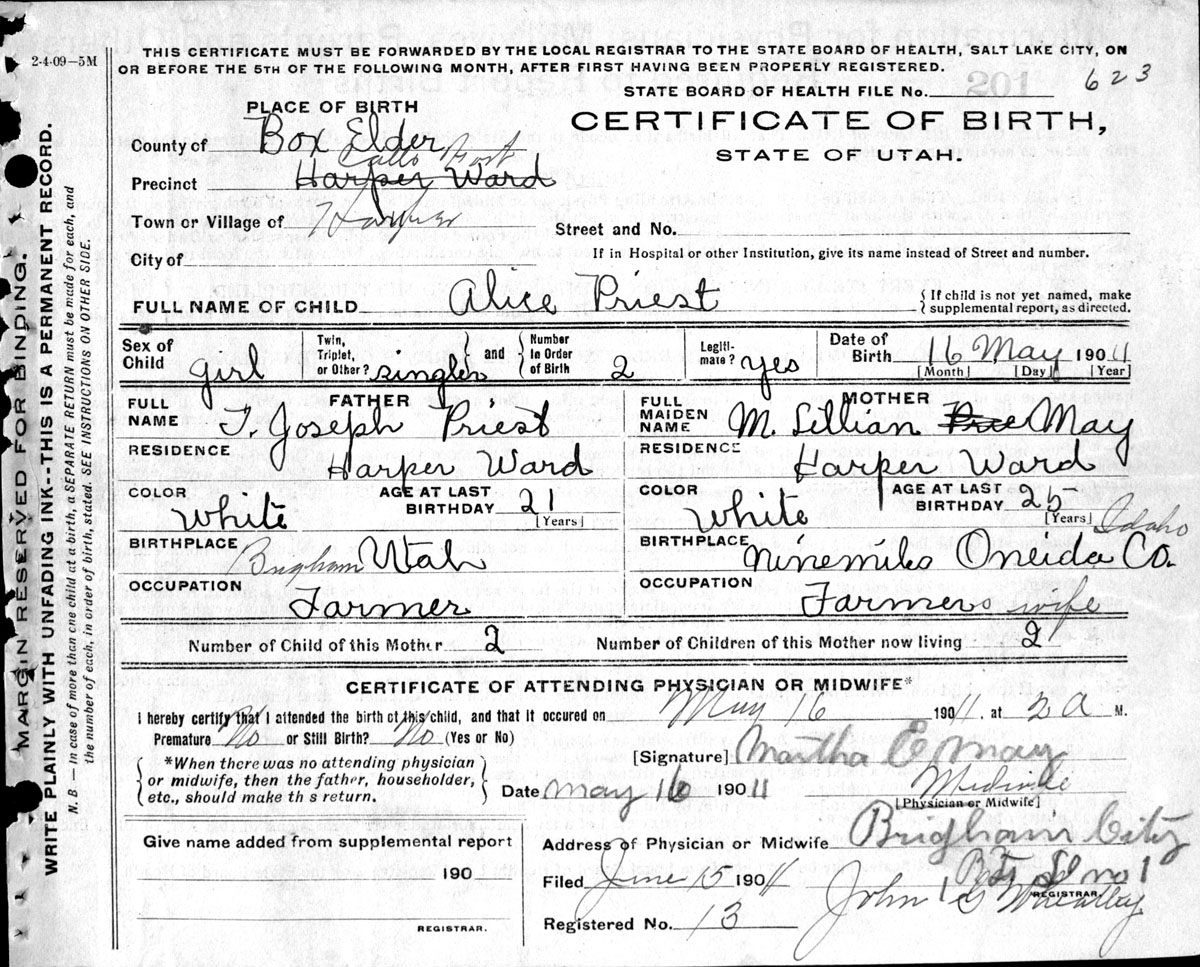 2-4-09-5M
THIS CERTIFICATE MUST BE FORWARDED BY THE LOCAL REGISTRAR TO THE STATE BOARD OF HEALTH, SALT LAKE CITY, ON
OR BEFORE THE 5TH OF THE FOLLOWING MONTH, AFTER FIRST HAVING BEEN PROPERLY REGISTERED.
STATE BOARD OF HEALTH FILE No. 623
PLACE OF BIRTH
CERTIFICATE OF BIRTH,
STATE OF UTAH.
County of Box Elder
Precinct Harper Ward
Town or Village of Harper
Street and No.
City of
If in Hospital or other Institution, give its name instead of Street and number.
FULL NAME OF CHILD Alice Priest
{ If child is not yet named, make
supplemental report, as directed.
Sex of Child girl Twin, Triplet, or Other? single and Number In Order of Birth 2 Legiti-mate? yes Date of Birth 16 May 1911
[Month] [Day] [Year]
FATHER MOTHER
FULL NAME T. Joseph Priest FULL MAIDEN NAME M. Lillian May
RESIDENCE Harper Ward RESIDENCE Harper Ward
COLOR White AGE AT LAST BIRTHDAY 21 [Years] COLOR White AGE AT LAST BIRTHDAY 25 [Years]
BIRTHPLACE Brigham Utah BIRTHPLACE Ninemile Oneida Co. Idaho
OCCUPATION Farmer OCCUPATION Farmers wife
Number of Child of this Mother 2 Number of Children of this Mother now living 2
CERTIFICATE OF ATTENDING PHYSICIAN OR MIDWIFE*
I hereby certify that I attended the birth of this child, and that it occured on May 16 1911, at 2 A M.
Premature No or Still Birth? No (Yes or No)
*When there was no attending physician
or midwife, then the father, householder,
etc., should make th s return.
[Signature] Martha E May
Date May 16 1911 Midwife
[Physician or Midwife]
Give name added from supplemental report
190
REGISTRAR.
Address of Physician or Midwife Brigham City
No 1
Filed June 15 1911 John G Wheatley
REGISTRAR.
Registered No. 13
MARGIN RESERVED FOR BINDING.
WRITE PLAINLY WITH UNFADING INK--THIS IS A PERMANENT RECORD.
N. B.—In case of more than one child at a birth, a SEPARATE RETURN must be made for each, and
the number of each, in order of birth, stated. SEE INSTRUCTIONS ON OTHER SIDE.